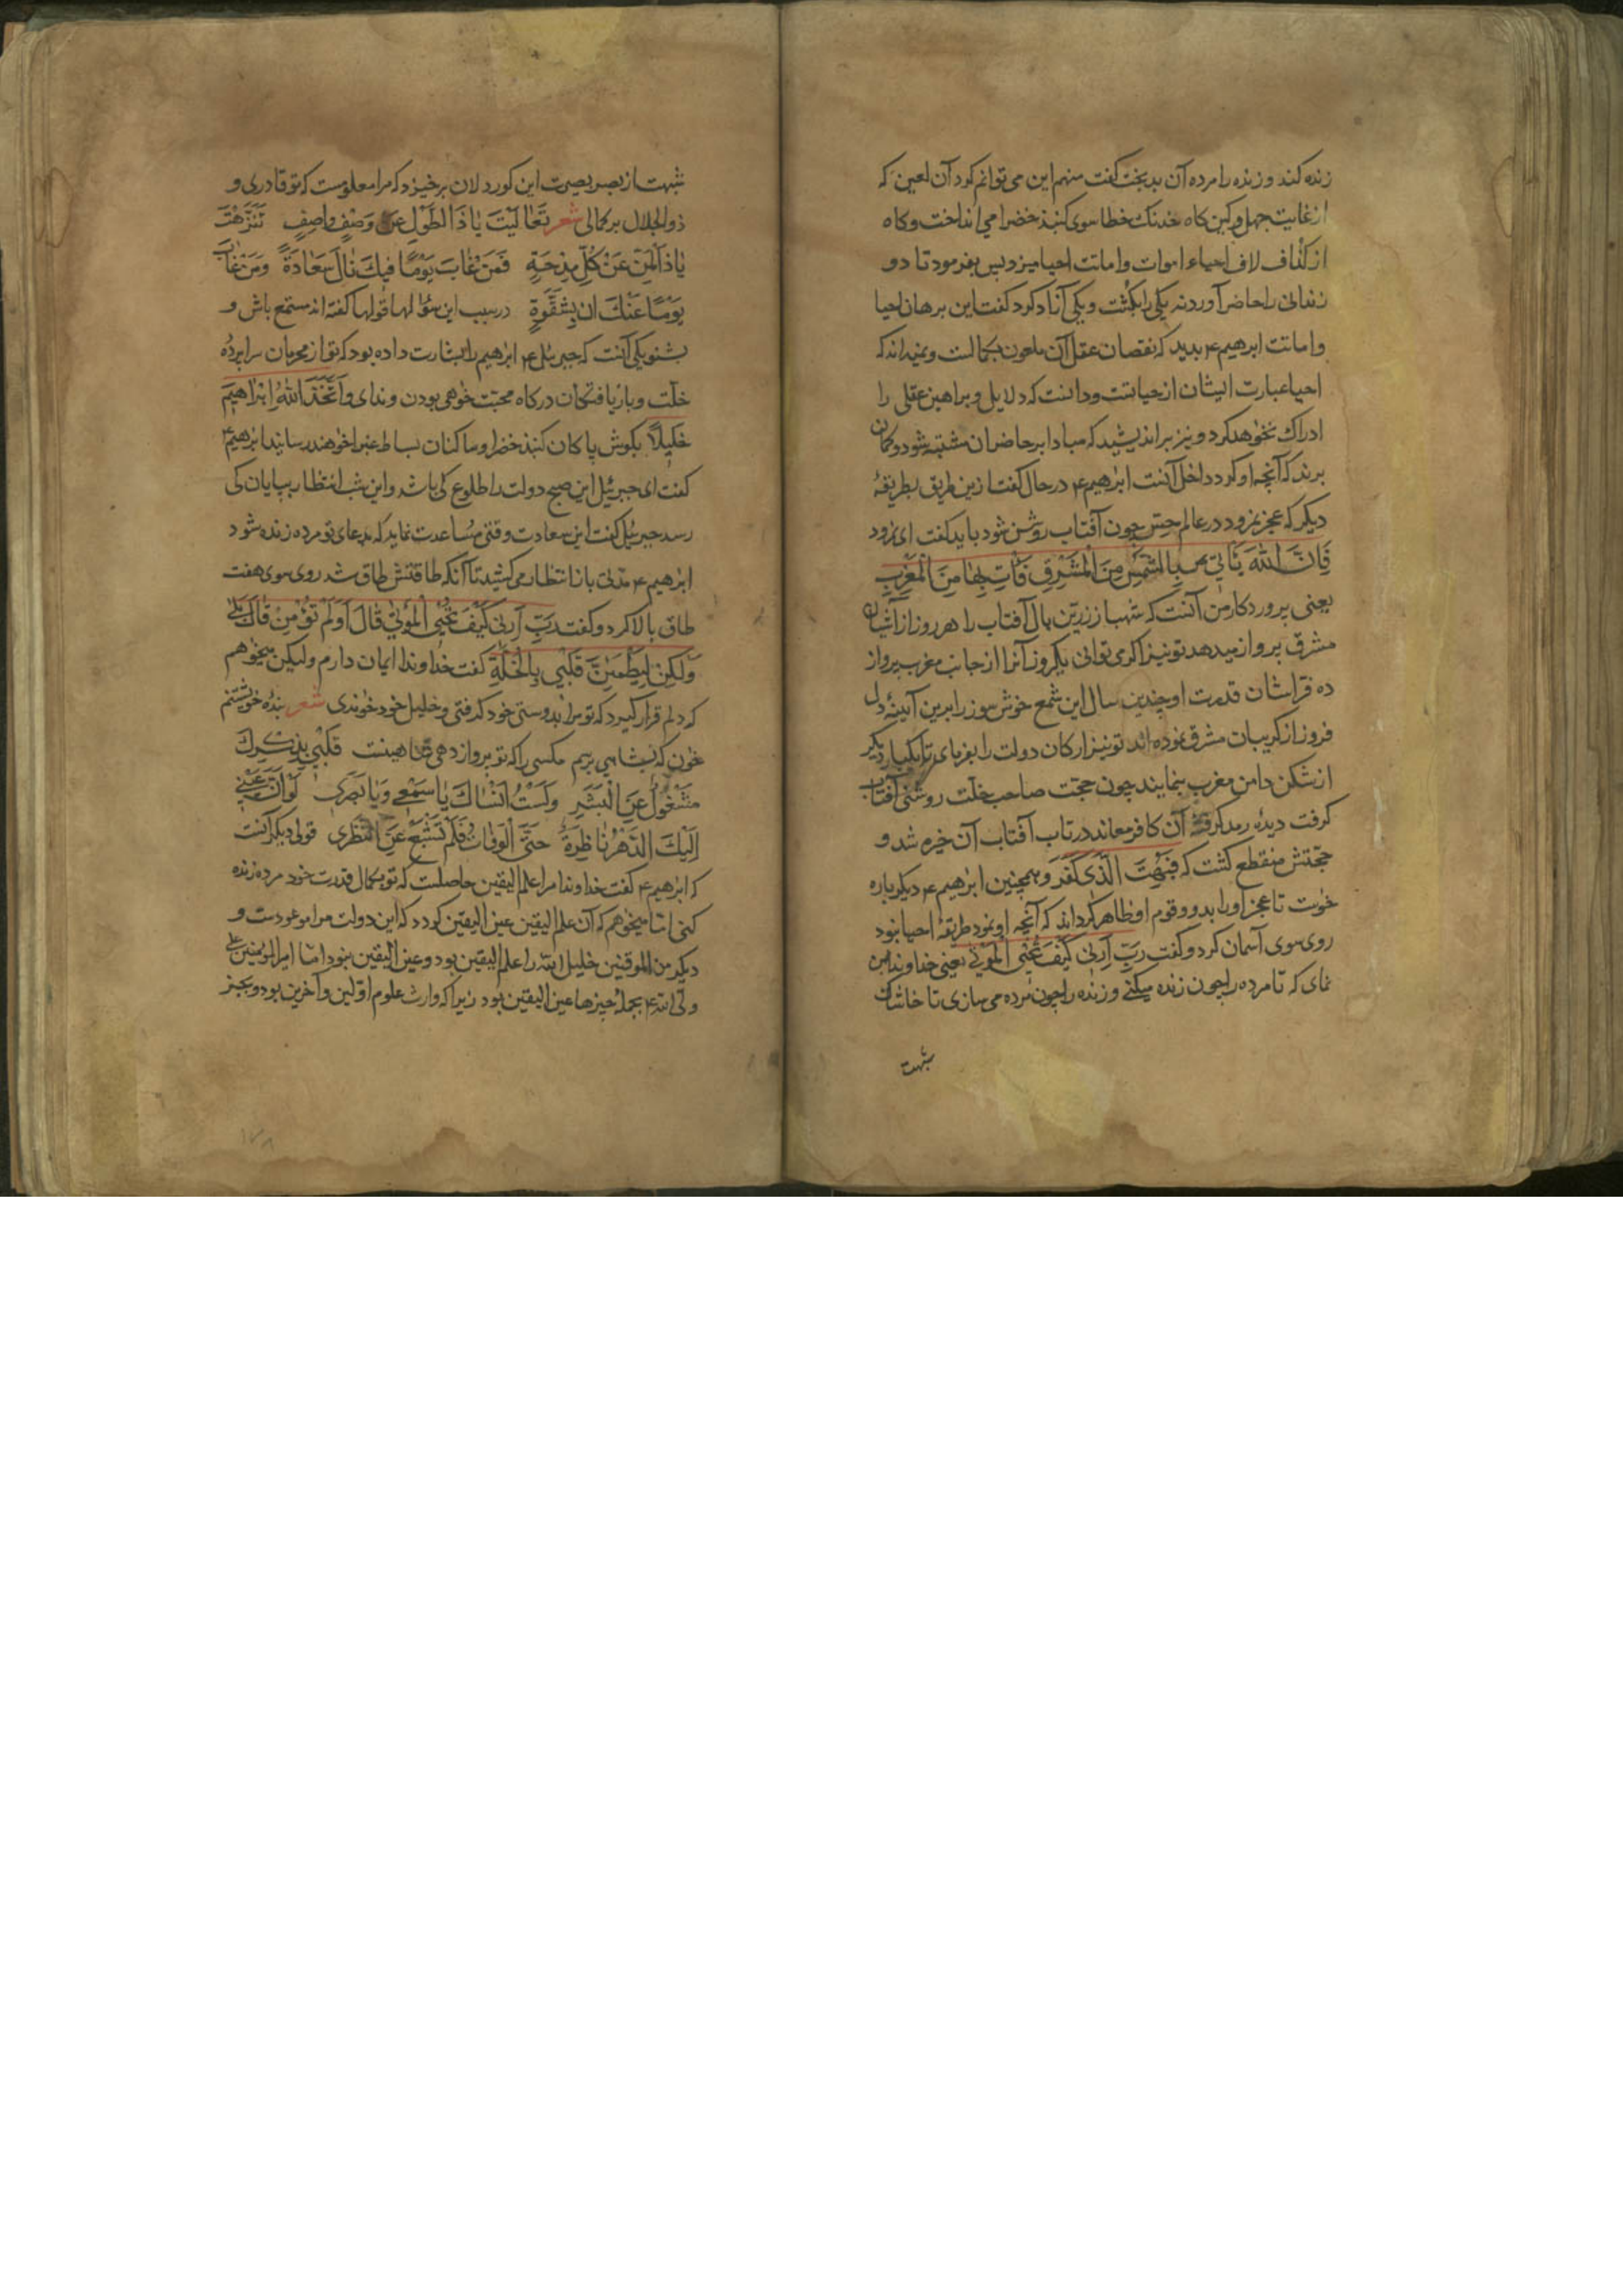 زنده کند و زنده را مرده آن بدبخت گفت منهم این می توانم کرد آن لعین که
از غایت جهل در کین کاه خدنک خطا سوی کنبذ خضرا می انداخت و کاه
از کذاف لاف احیاء اموات و اماتت احیا میزد پس بفرمود تا دو
زندانی را حاضر آوردند یکی را بکشت و یکی آزاد کرد گفت این برهان احیا
و اماتت ابرهیم ۴ بدید که نقصان عقل آن ملعون بکمالست و نمیداند که
احیا عبارت ایشان از حیاتست و دانست که دلایل و براهین عقلی را
ادراک نخواهد کرد و نیز براندیشید که مبادا بر حاضران مشتبه شود و کمان
برند که آنچه او کرد داخل آنست ابرهیم ۴ در حال گفت ازین طریق بطریقهٔ
دیکر که عجز نمرود در عالم حس چون آفتاب روشن شود باید گفت ای نمرود
فَاِنَّ اللهَ یَأتی بِالشَّمْسِ مِنَ الْمَشْرِقِ فَأتِ بِهٰا مِنَ الْمَغْرِبِ
یعنی پروردکار من آنست که شهباز زرین بال آفتاب را هر روز از آشیان
مشرق پرواز میدهد تو نیز اکر می توانی یکروز آنرا از جانب مغرب پرواز
ده فراشان قدرت او چندین سال این شمع خوش سوز را برین آیینهٔ دل
فروز از کریبان مشرق نموده اند تو نیز ارکان دولت را بفرمای تا یکبار دیکر
از شکن دامن مغرب بنمایند چون حجت صاحب خلت روشنی آفتاب
کرفت دیدهٔ رمد کرفته آن کافر معاند در تاب آفتاب آن خیره شد و
حجتش منقطع کشت که فَبُهِتَ الَّذی کَفَرَ و همچنین ابرهیم ۴ دیکر باره
خوٰست تا عجز او را بدو و قوم او ظاهر کرداند که آنچه او نمود طریقهٔ احیا نبود
روی سوی آسمان کرد و کفت رَبِّ اَرِنی کَیْفَ تُحْیِی الْمَوْتٰی یعنی خداوندا بمن
نمای که تا مرده را چون زنده میکنی و زنده را چون مرده می سازی تا خاشاک
شبهت
شبهت از بصر بصیرت این کوردلان برخیزد که مرا معلومست که تو قادری و
ذو الجلال بر کمالی شعر تَعٰالَیْتَ یٰا ذَا الطَّوْلِ عن وَصْفِ واصِفٍ تَنَزَّهْتَ
یٰا ذَا الْمَنِّ عَنْ کُلِّ مِدْحَةٍ فَمَنْ غٰابَ یَوْمًا فیكَ نٰالَ سَعٰادَةً وَمَنْ غٰابَ
یَوْمًا عَنْكَ بِشَقْوَةٍ در سبب این سؤالها قولها کفته اند مستمع باش و
بشنو یکی آنست که جبرئیل ۴ ابرهیم را بشارت داده بود که تو از محرمان سراپردهٔ
خلّت و بار یافتکان درکاه محبت خوٰهی بودن و ندای وَاتَّخَذَ اللهُ اِبْرٰاهیمَ
خَلیلاً بکوش پاکان کنبذ خضرا و ساکنان بساط غبرا خوٰهند رسانید ابرهیم ۴
کفت ای جبرئیل این صبح دولت را طلوع کی باشد و این شب انتظار بپایان کی
رسد جبرئیل کفت این سعادت وقتی مساعدت نماید که بدعای تو مرده زنده شود
ابرهیم ۴ مدتی بار انتظار می کشید تا آنکه طاقتش طاق شد روی سوی هفت
طاق بالا کرد و کفت رَبِّ اَرِنی کَیْفَ تُحْیِی الْمَوْتٰی قٰالَ اَوَلَمْ تُؤْمِنْ قٰالَ بَلٰی
وَلٰکِنْ لِیَطْمَئِنَّ قَلْبی بِالْخُلَّةِ کفت خداوندا ایمان دارم ولیکن میخوٰهم
که دلم قرار کیرد که تو مرا بدوستی خود کرفتی و خلیل خود خوٰندی شعر بندهٔ خویشتنم
خوٰن که بشاهی برسم مکسی را که تو پرواز دهی شاهینست قَلْبی بِذِکْرِكَ
مَشْغُولٌ عَنِ الْبَشَرِ وَلَسْتُ اَنْسٰاكَ یٰا سَمْعی وَیٰا بَصَری لَوْ اَنَّ عَیْنی
اِلَیْكَ الدَّهْرَ نٰاظِرَةٌ حَتَّی الْوَفٰاتِ فَلَمْ تَشْبَعْ عَنِ النَّظَری قولی دیکر آنست
که ابرهیم ۴ کفت خداوندا مرا علم الیقین حاصلست که تو بکمال قدرت خود مرده زنده
کنی اما میخوٰهم که آن علم الیقین عین الیقین کردد که این دولت مرا موعودست و
دیکر من الموقنین خلیل الله را علم الیقین بود و عین الیقین نبود اما امیر المؤمنین علی
ولی الله ۴ بجمله چیزها عین الیقین بود زیرا که وارث علوم اولین و آخرین بود و بجز
۱۷۸